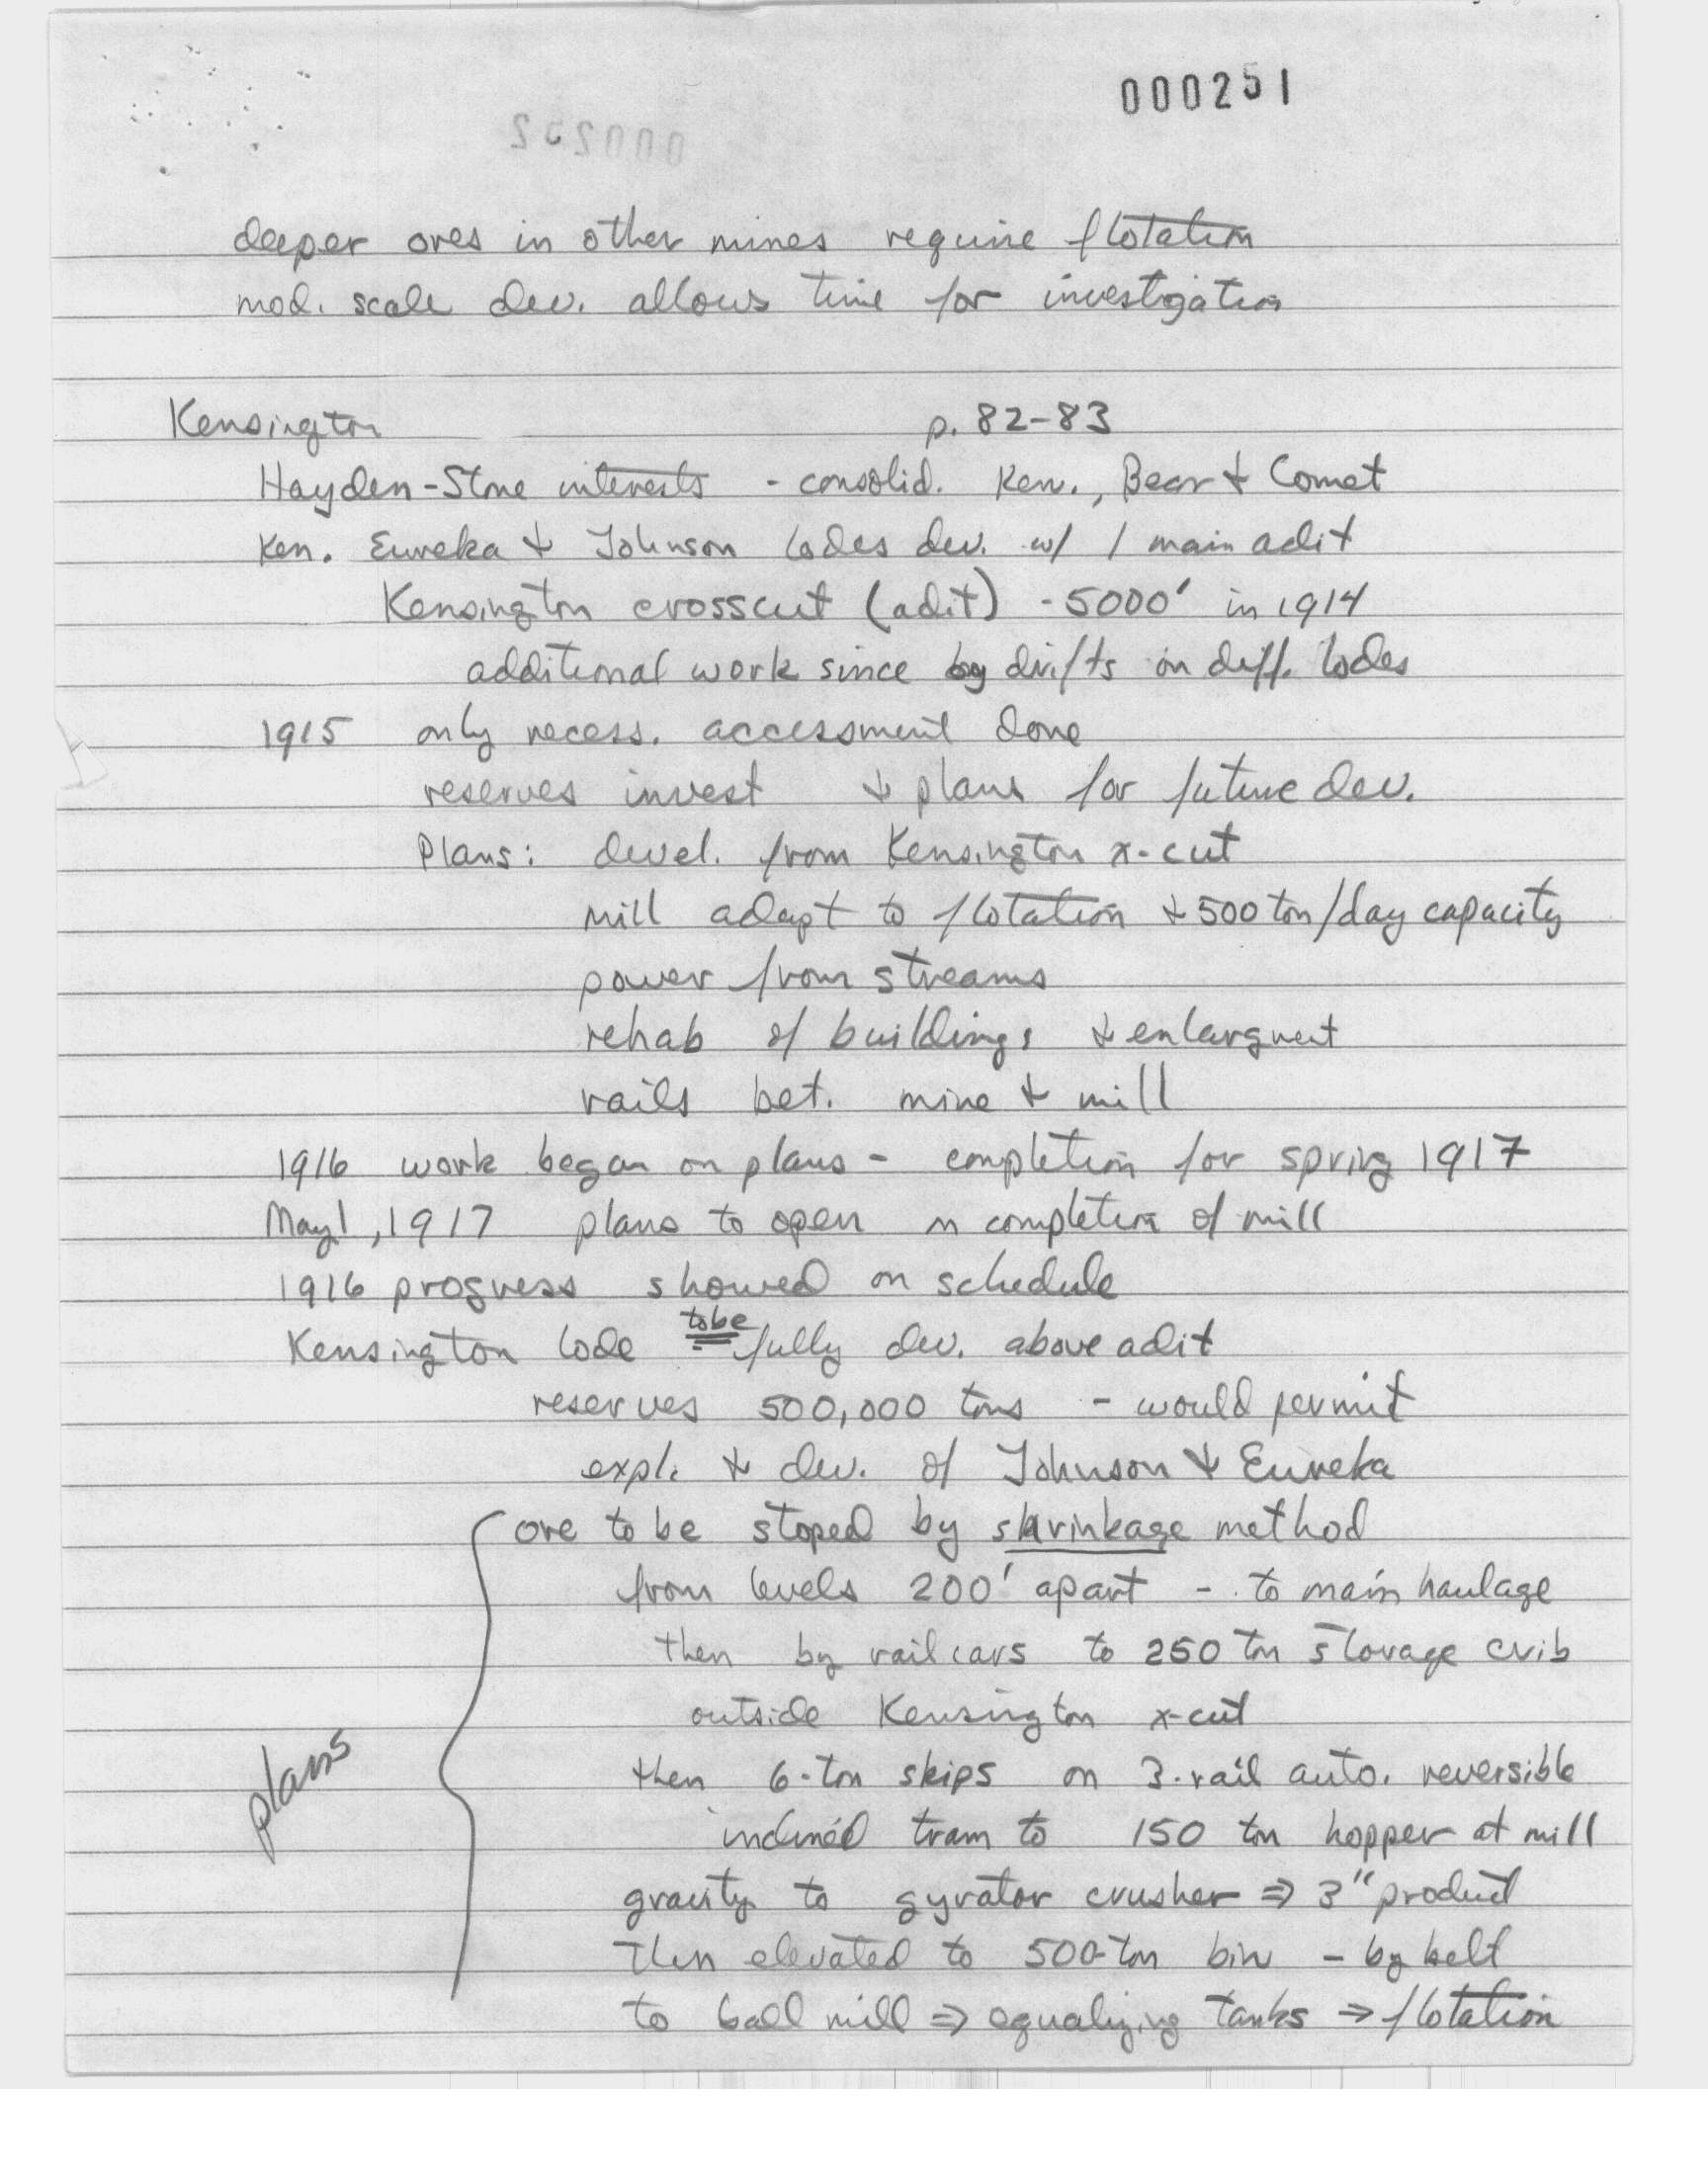 000251
000252
deeper ores in other mines require flotation
mod. scale dev. allows time for investigation
Kensington p. 82-83
Hayden-Stone interests - consolid. Ken., Bear & Comet
Ken. Eureka & Johnson lodes dev. w/ 1 main adit
Kensington crosscut (adit) - 5000' in 1914
additional work since by drifts on diff. lodes
1915 only necess. accessment done
reserves invest & plans for future dev.
Plans: devel. from Kensington x-cut
mill adapt to flotation & 500 ton/day capacity
power from streams
rehab of buildings & enlargment
rails bet. mine & mill
1916 work began on plans - completion for spring 1917
May 1, 1917 plans to open on completion of mill
1916 progress showed on schedule
Kensington lode to be fully dev. above adit
reserves 500,000 tons - would permit
expl. & dev. of Johnson & Eureka
ore to be stoped by shrinkage method
from levels 200' apart - to main haulage
then by rail cars to 250 ton storage crib
outside Kensington x-cut
plans
then 6-ton skips on 3-rail auto. reversible
inclined tram to 150 ton hopper at mill
gravity to gyrator crusher ⇒ 3" product
then elevated to 500-ton bin - by belt
to ball mill ⇒ equalizing tanks ⇒ flotation